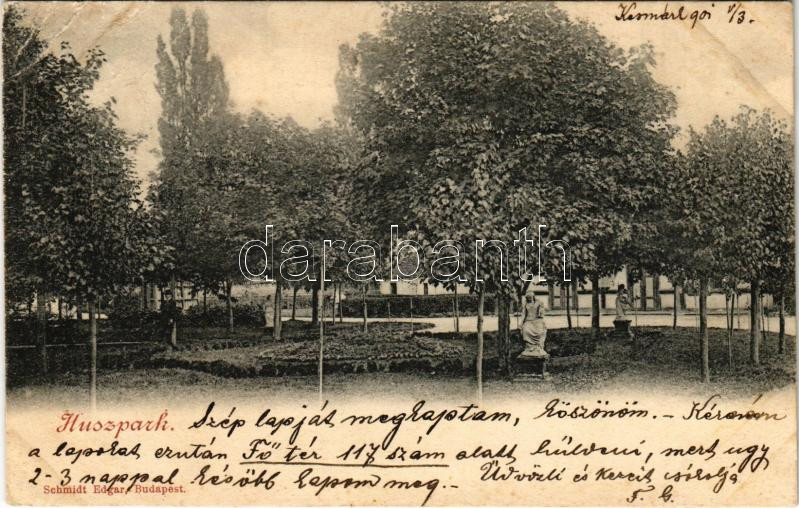 Kesmárk 901 V/3.
darabanth
Huszpark. Szép lapját megkaptam, köszönöm. - Kérném
a lapokat ezután Fő tér 117 szám alatt küldeni, mert ugy
2-3 nappal később kapom meg. - Üdvözli és kezeit csókolja
Schmidt Edgar, Budapest.
F. G.